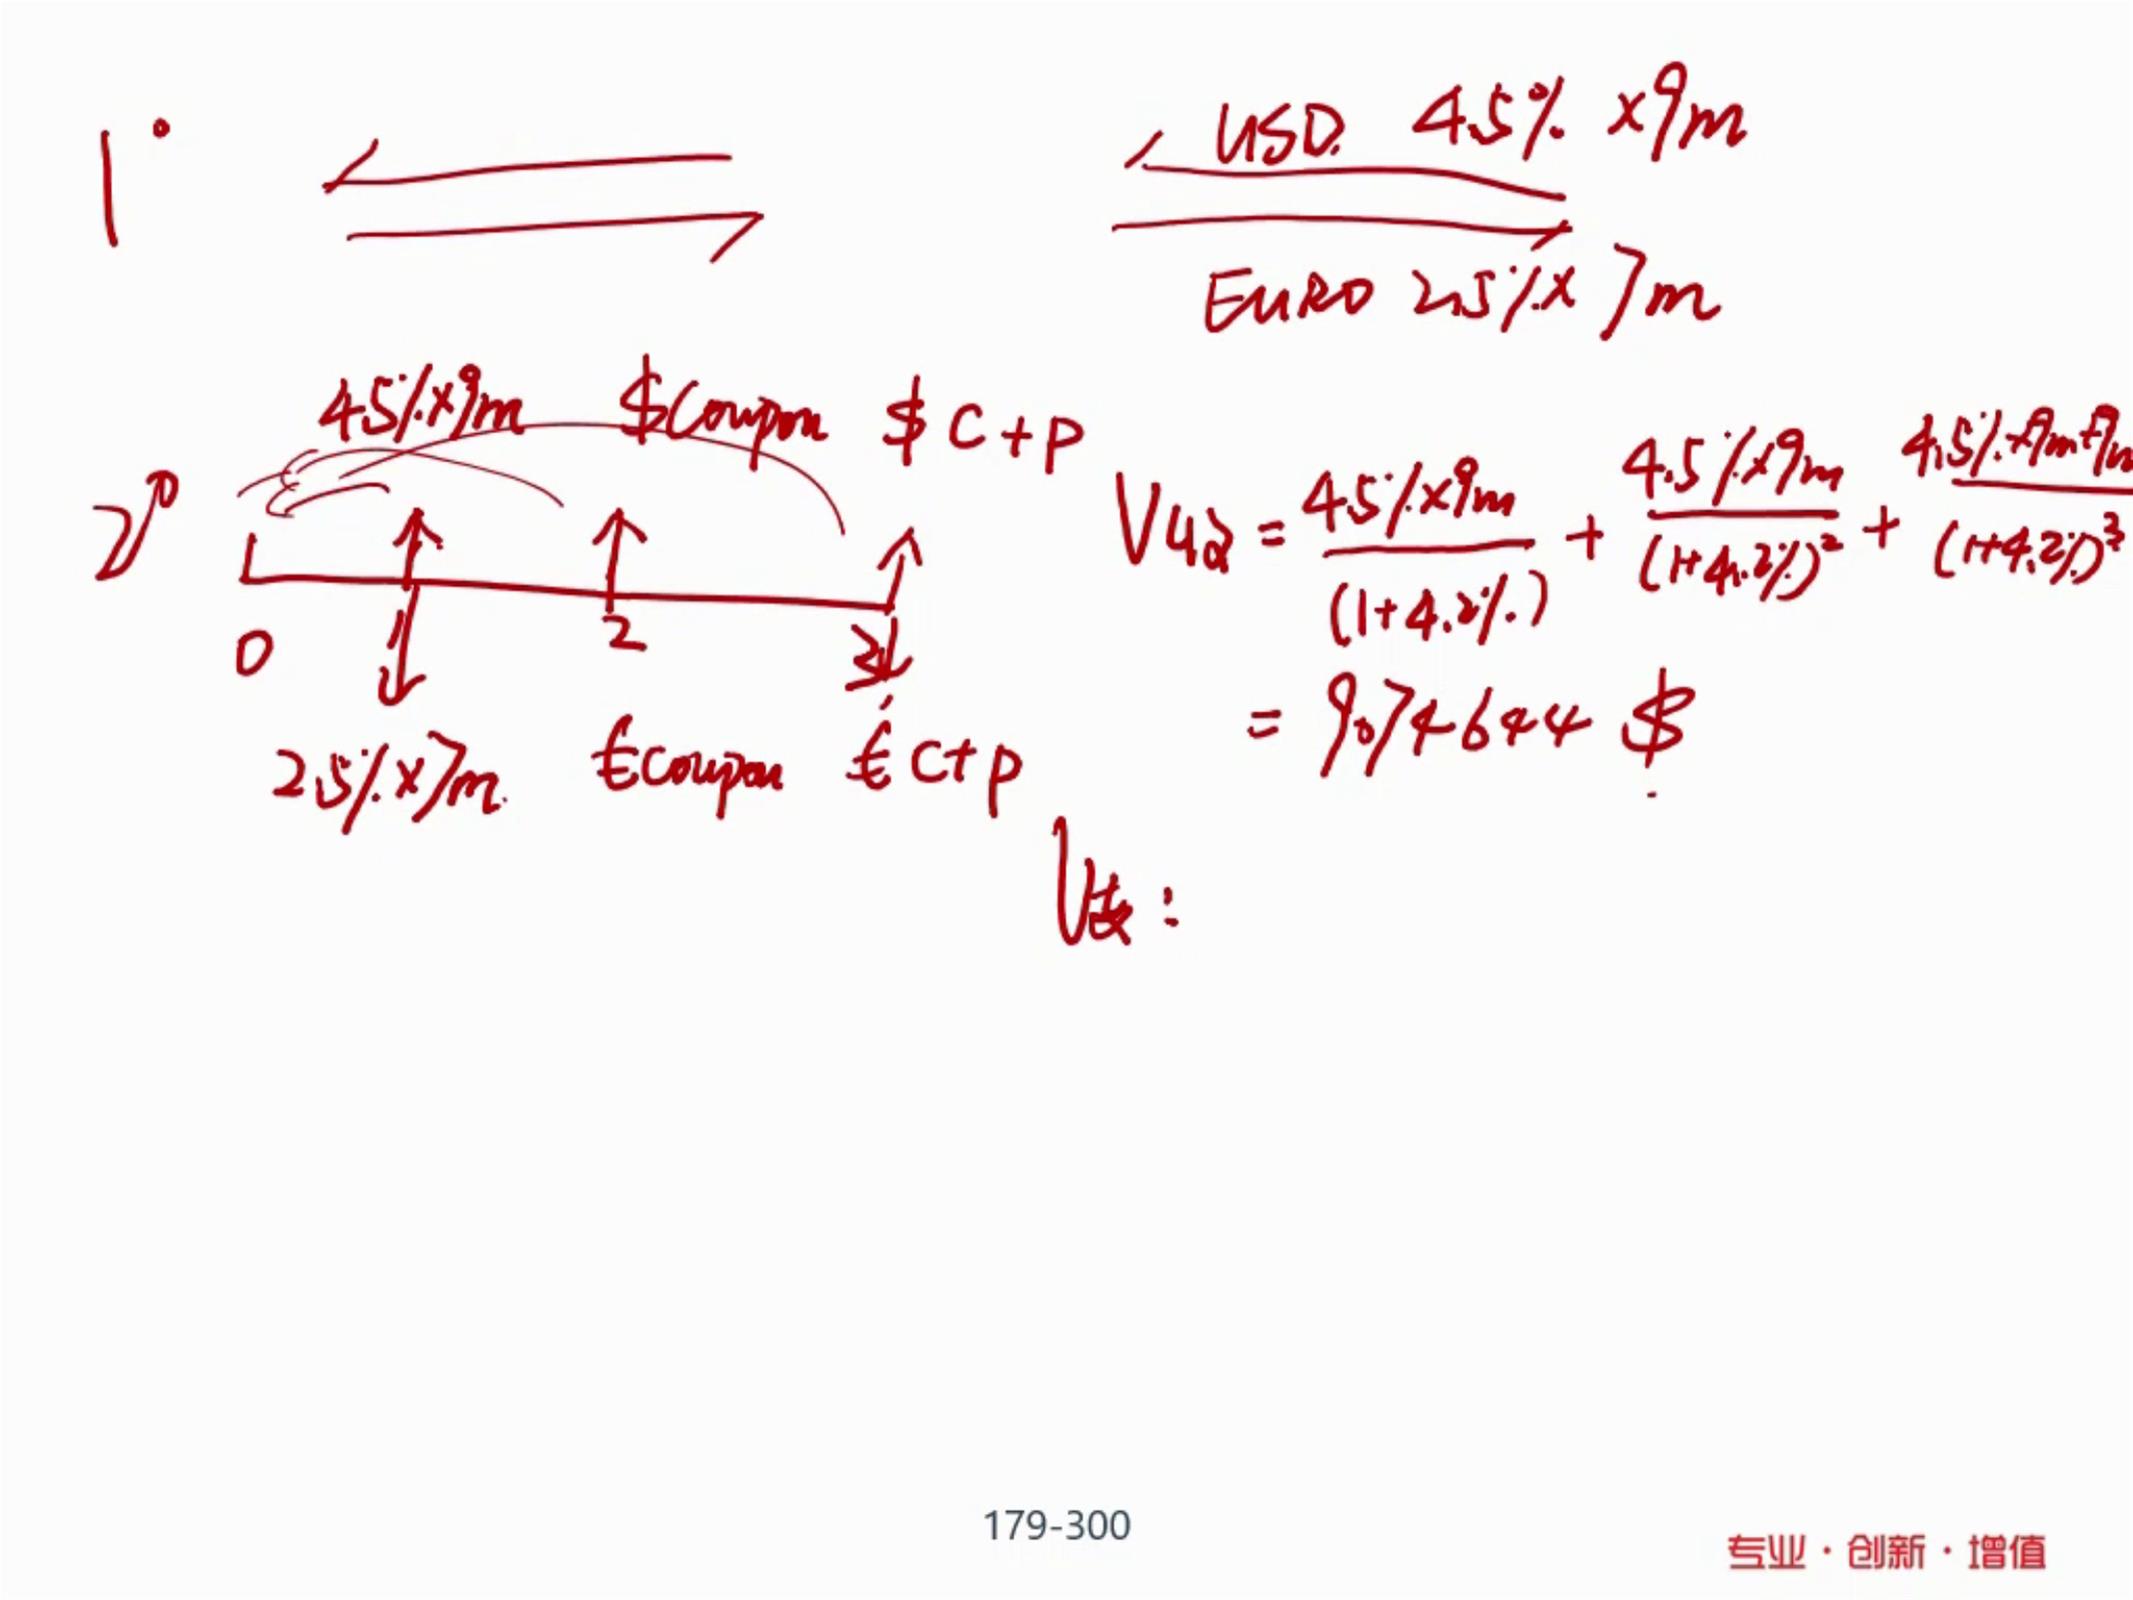 1°
USD. 4.5% x9m
EURO 2.5% x 7m
2°
4.5% x9m $Coupon $ C+P
0 1 2 3
2.5% x7m. €Coupon € C+P
V收 = 4.5% x9m / (1+4.2%) + 4.5% x9m / (1+4.2%)² + 4.5% x9m+9m / (1+4.2%)³
= 9074644 $
V支:
179-300
专业·创新·增值